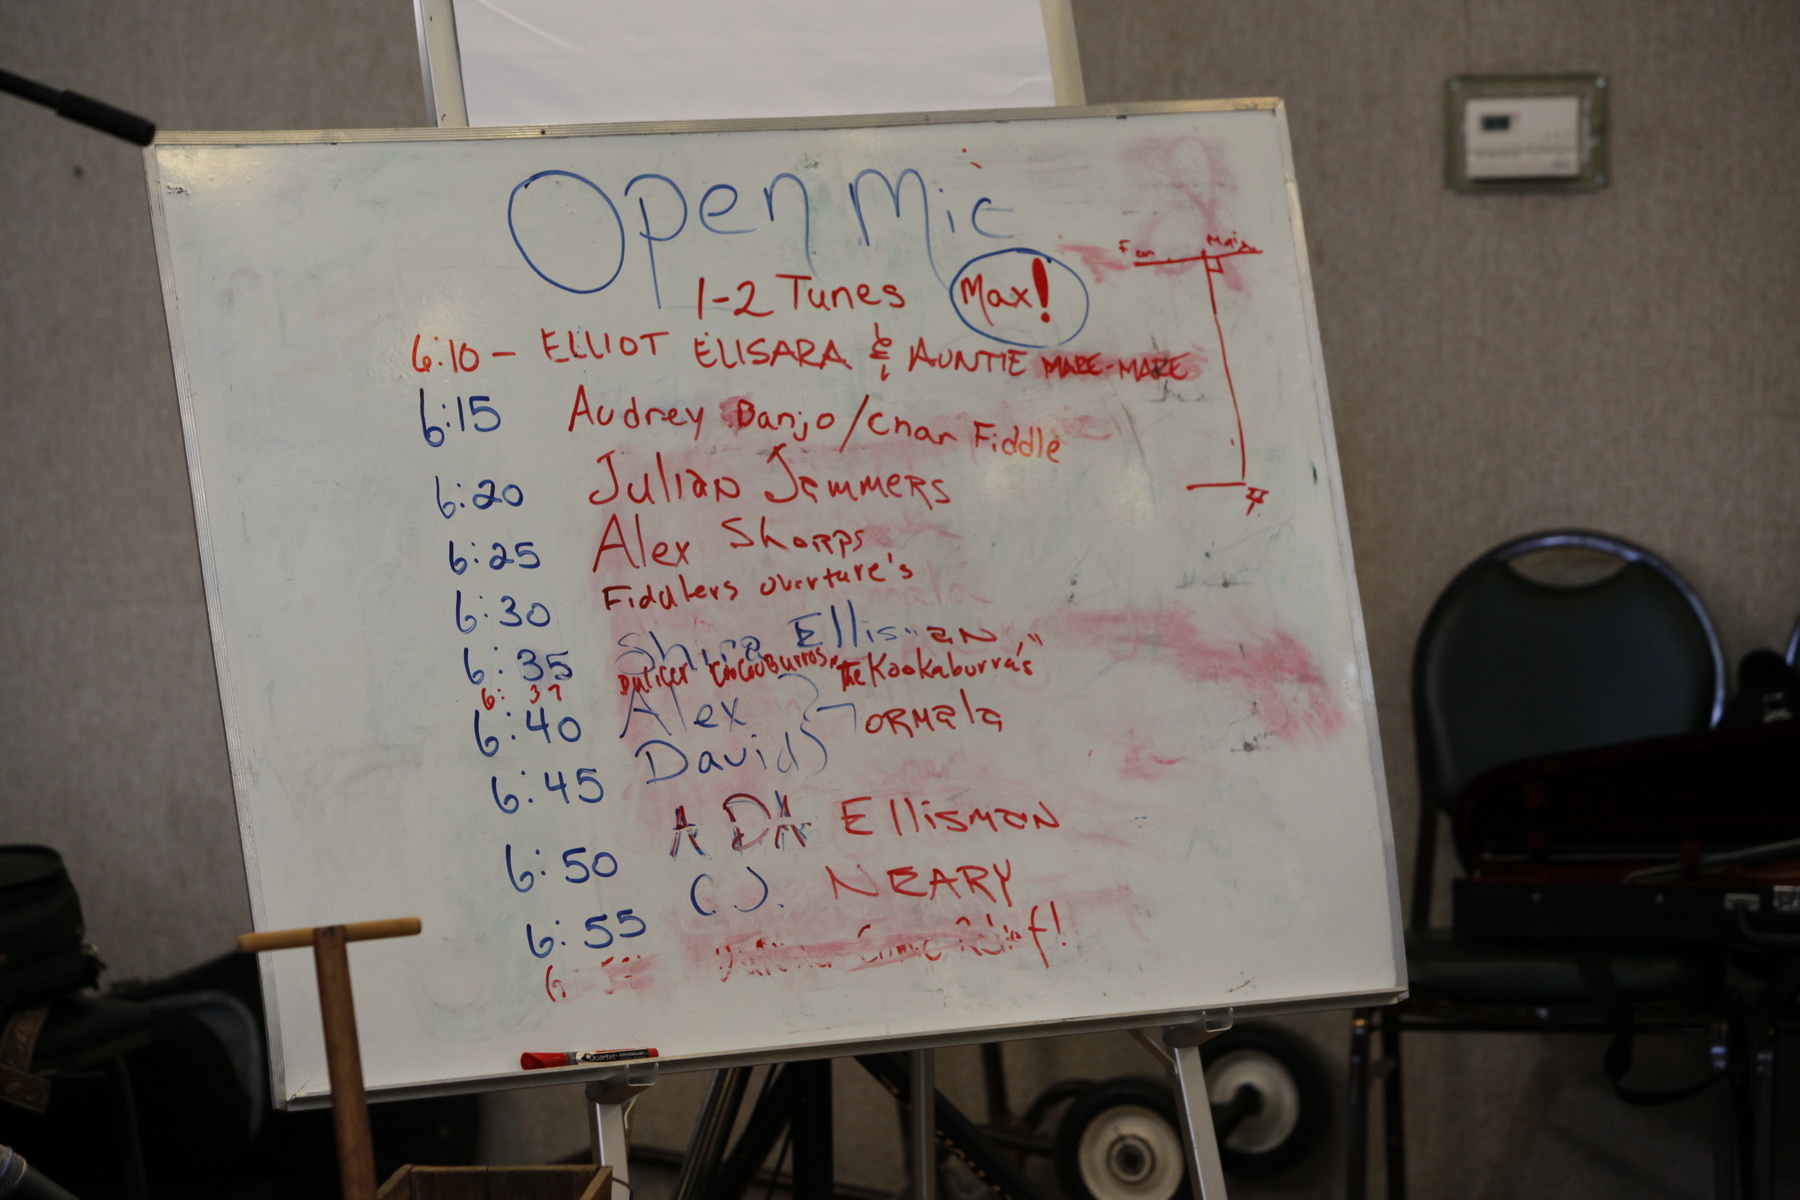 Open Mic
1-2 Tunes Max!
6:10 - ELLIOT ELISARA & AUNTIE MARE-MARE
6:15 Audrey Banjo/Char Fiddle
6:20 Julian Jammers
6:25 Alex Sharps
6:30 Fiddlers overture's
6:35 Shira Ellisman
6:37 The Kookaburra's
6:40 Alex
Tormala
6:45 David
6:50 ADA Ellisman
6:55 CJ. NEARY
6: